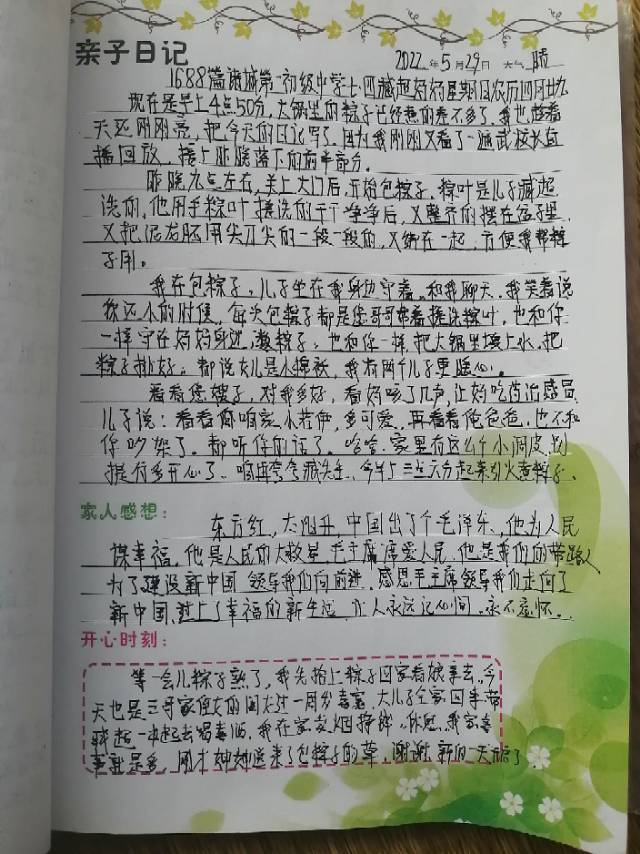 亲子日记 2022年5月29日 天气 晴
1688 潇湘城第一初级中学七四臧超妈妈星期日农历四月廿九
现在是早上4点50分,大锅里的粽子已经煮的差不多了,我也趁着
天还刚刚亮,把今天的日记写了,因为我刚刚又看了一遍武校长直
播回放,接上昨晚落下的前半部分。
昨晚九点左右,关上大门后,开始包粽子,粽叶是儿子臧超
洗的,他用手粽叶搓洗的干干净净后,又整齐的摆在盆子里,
又把泥龙脉用尖刀尖的一段一段的,又绑在一起,方便我帮粽
子用。
我在包粽子,儿子坐在我身边守着,和我聊天,我笑着说
你还小的时候,每次包粽子都是您哥哥帮着搓洗粽叶,也和你
一样守在妈妈身边,煮粽子,也和你一样,把大锅里填上水,把
粽子排好,都说女儿是小棉袄,我有两个儿子更暖心。
看看您嫂子,对我多好,看妈咳了几声,让妈吃药治感冒,
儿子说:看看咱家小若伊,多可爱,再看看俺爸爸,也不和
你吵架了,都听你的话了。哈哈,家里有这么个小调皮,别
提有多开心了。咱再夸夸臧先生,今早三点六分起来引火煮粽子。
家人感想:
东方红,太阳升,中国出了个毛泽东,他为人民
谋幸福,他是人民的大救星,毛主席,爱人民,他是我们的带路人
为了建设新中国,领导我们向前进。感恩毛主席领导我们走向了
新中国,过上了幸福的新生活,让人永远记心间,永不忘怀。
开心时刻:
等一会儿粽子熟了,我先拾上粽子回家看娘亲去,今
天也是三哥家侄女的闺女过一周岁喜宴,大儿子全家四手带
臧超一块起去喝喜酒,我在家发烟
喜事就是多,刚才婶婶送来了包粽子的草,谢谢,新的一天